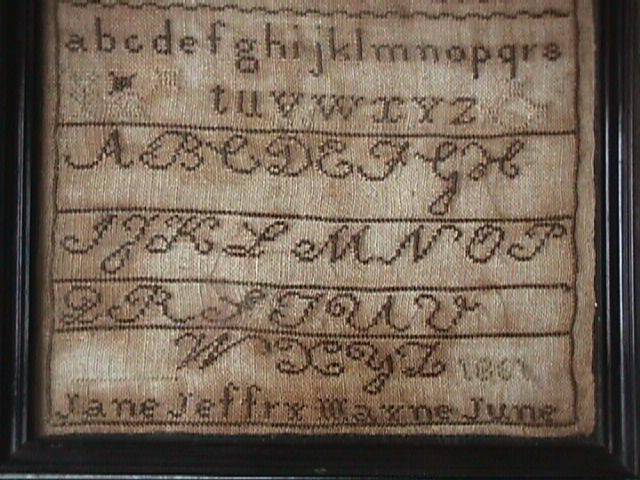 abcdefghijklmnopqrs
tuvwxyz
ABCDEFGH
IJKLMNOP
QRSTUV
WXYZ
Jane Jeffry June